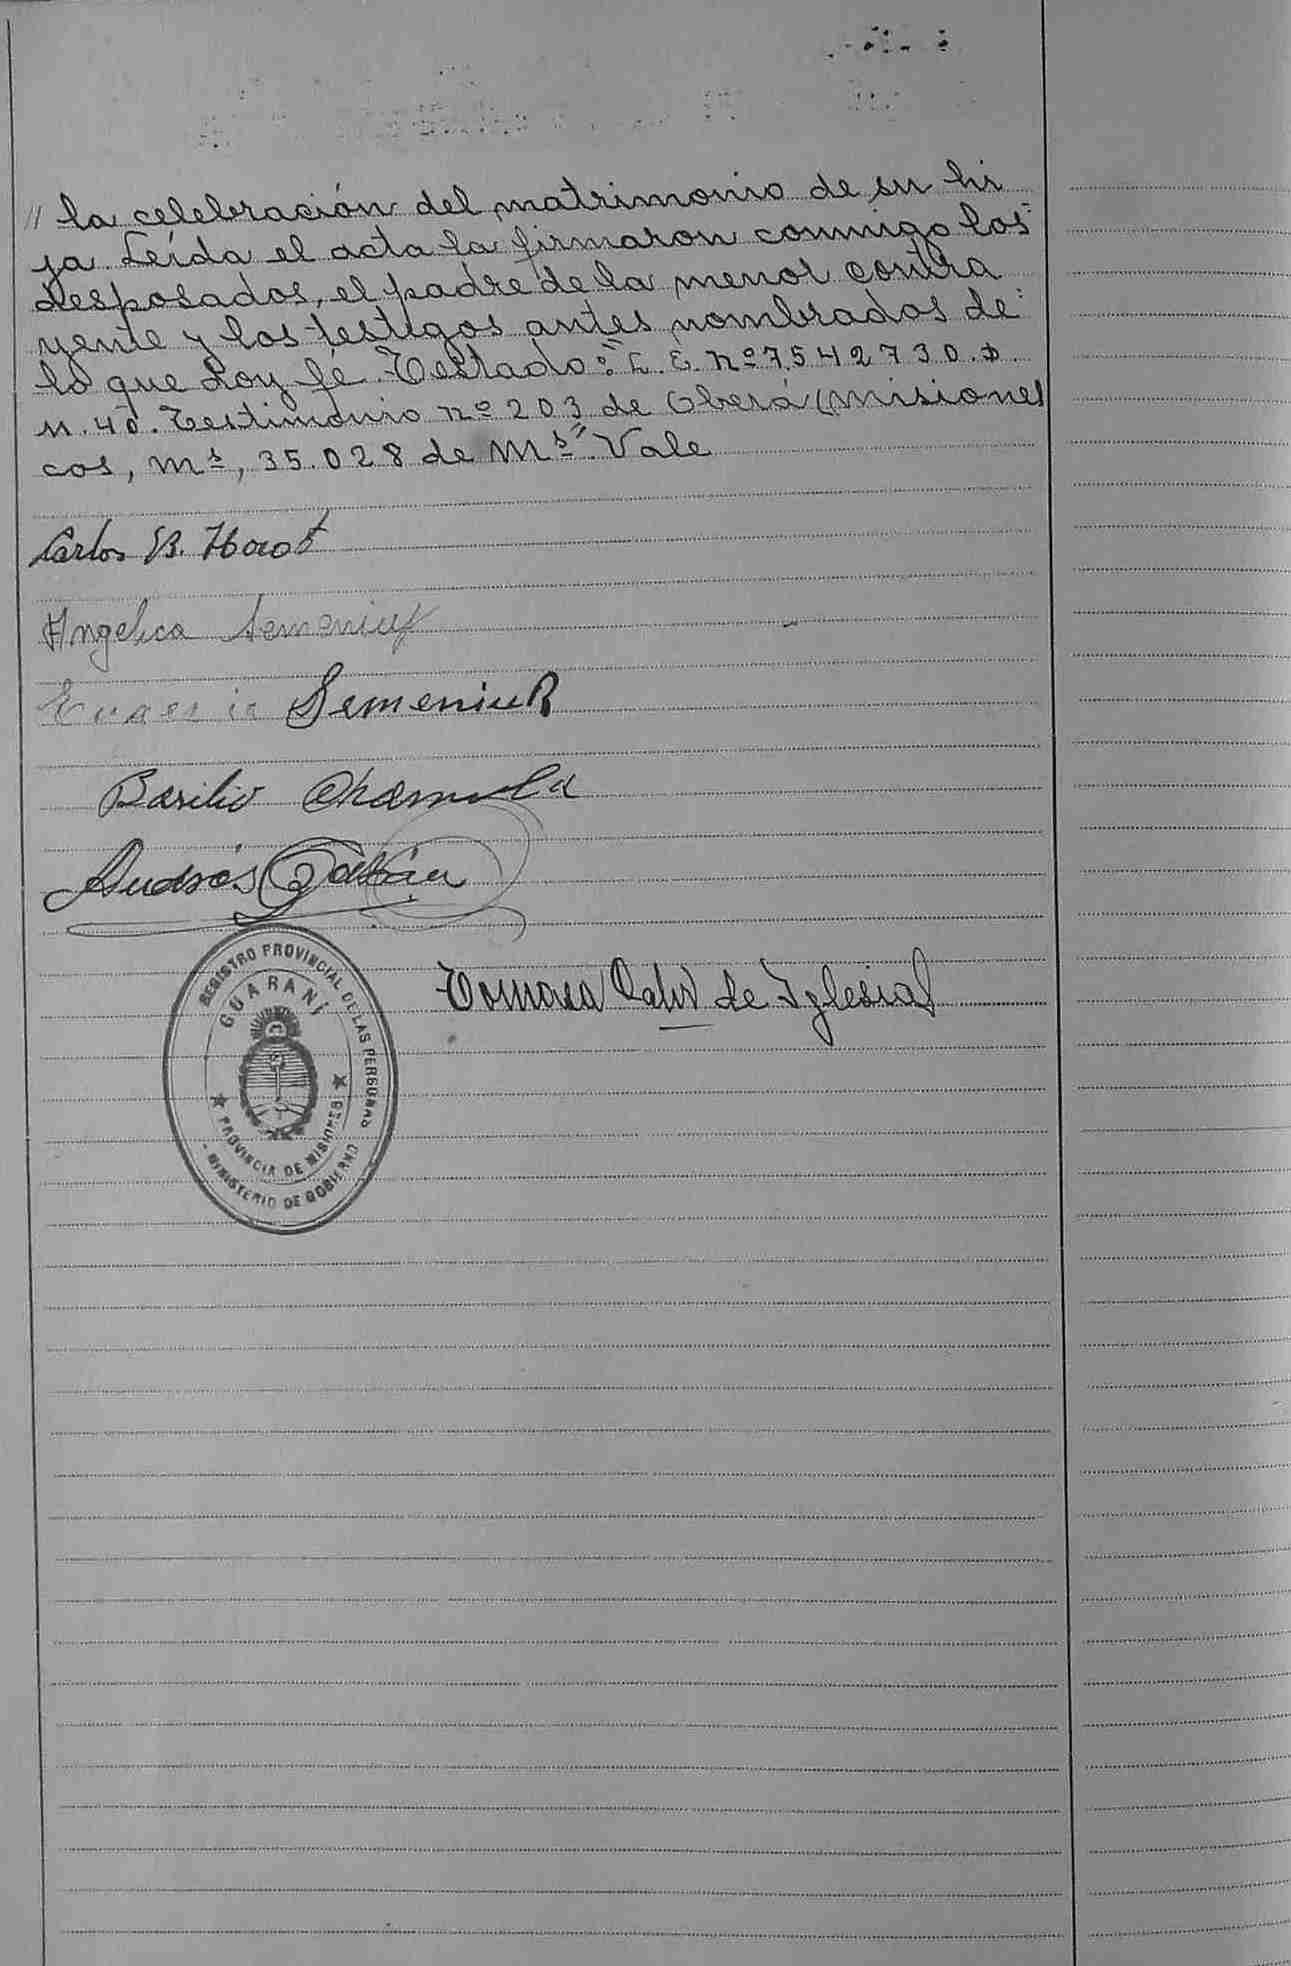 // la celebración del matrimonio de su hi
ja. Leída el acta la firmaron conmigo los
desposados, el padre de la menor contra
yente y los testigos antes nombrados de
lo que doy fé. Testado: "L. E. nº 7.542.730. D.
M. 40. Testimonio nº 203 de Oberá (misiones
cos, Mˢ, 35.028 de Mˢ". Vale
Carlos B.
Angelica Semeniuk
Semeniuk
Basilio
Andrés
REGISTRO PROVINCIAL DE LAS PERSONAS
GUARANÍ
PROVINCIA DE MISIONES
MINISTERIO DE GOBIERNO
Tomasa de Iglesias